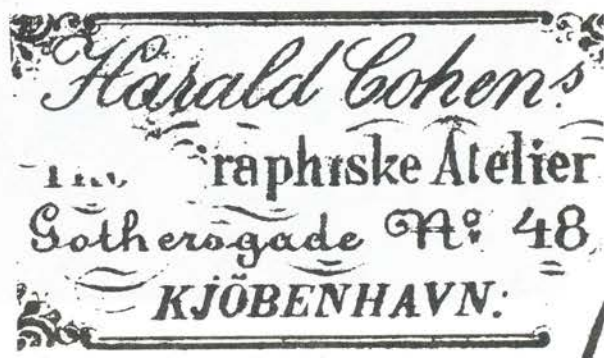 Harald Cohens
Atelier
Gothersgade No. 48
KJÖBENHAVN.